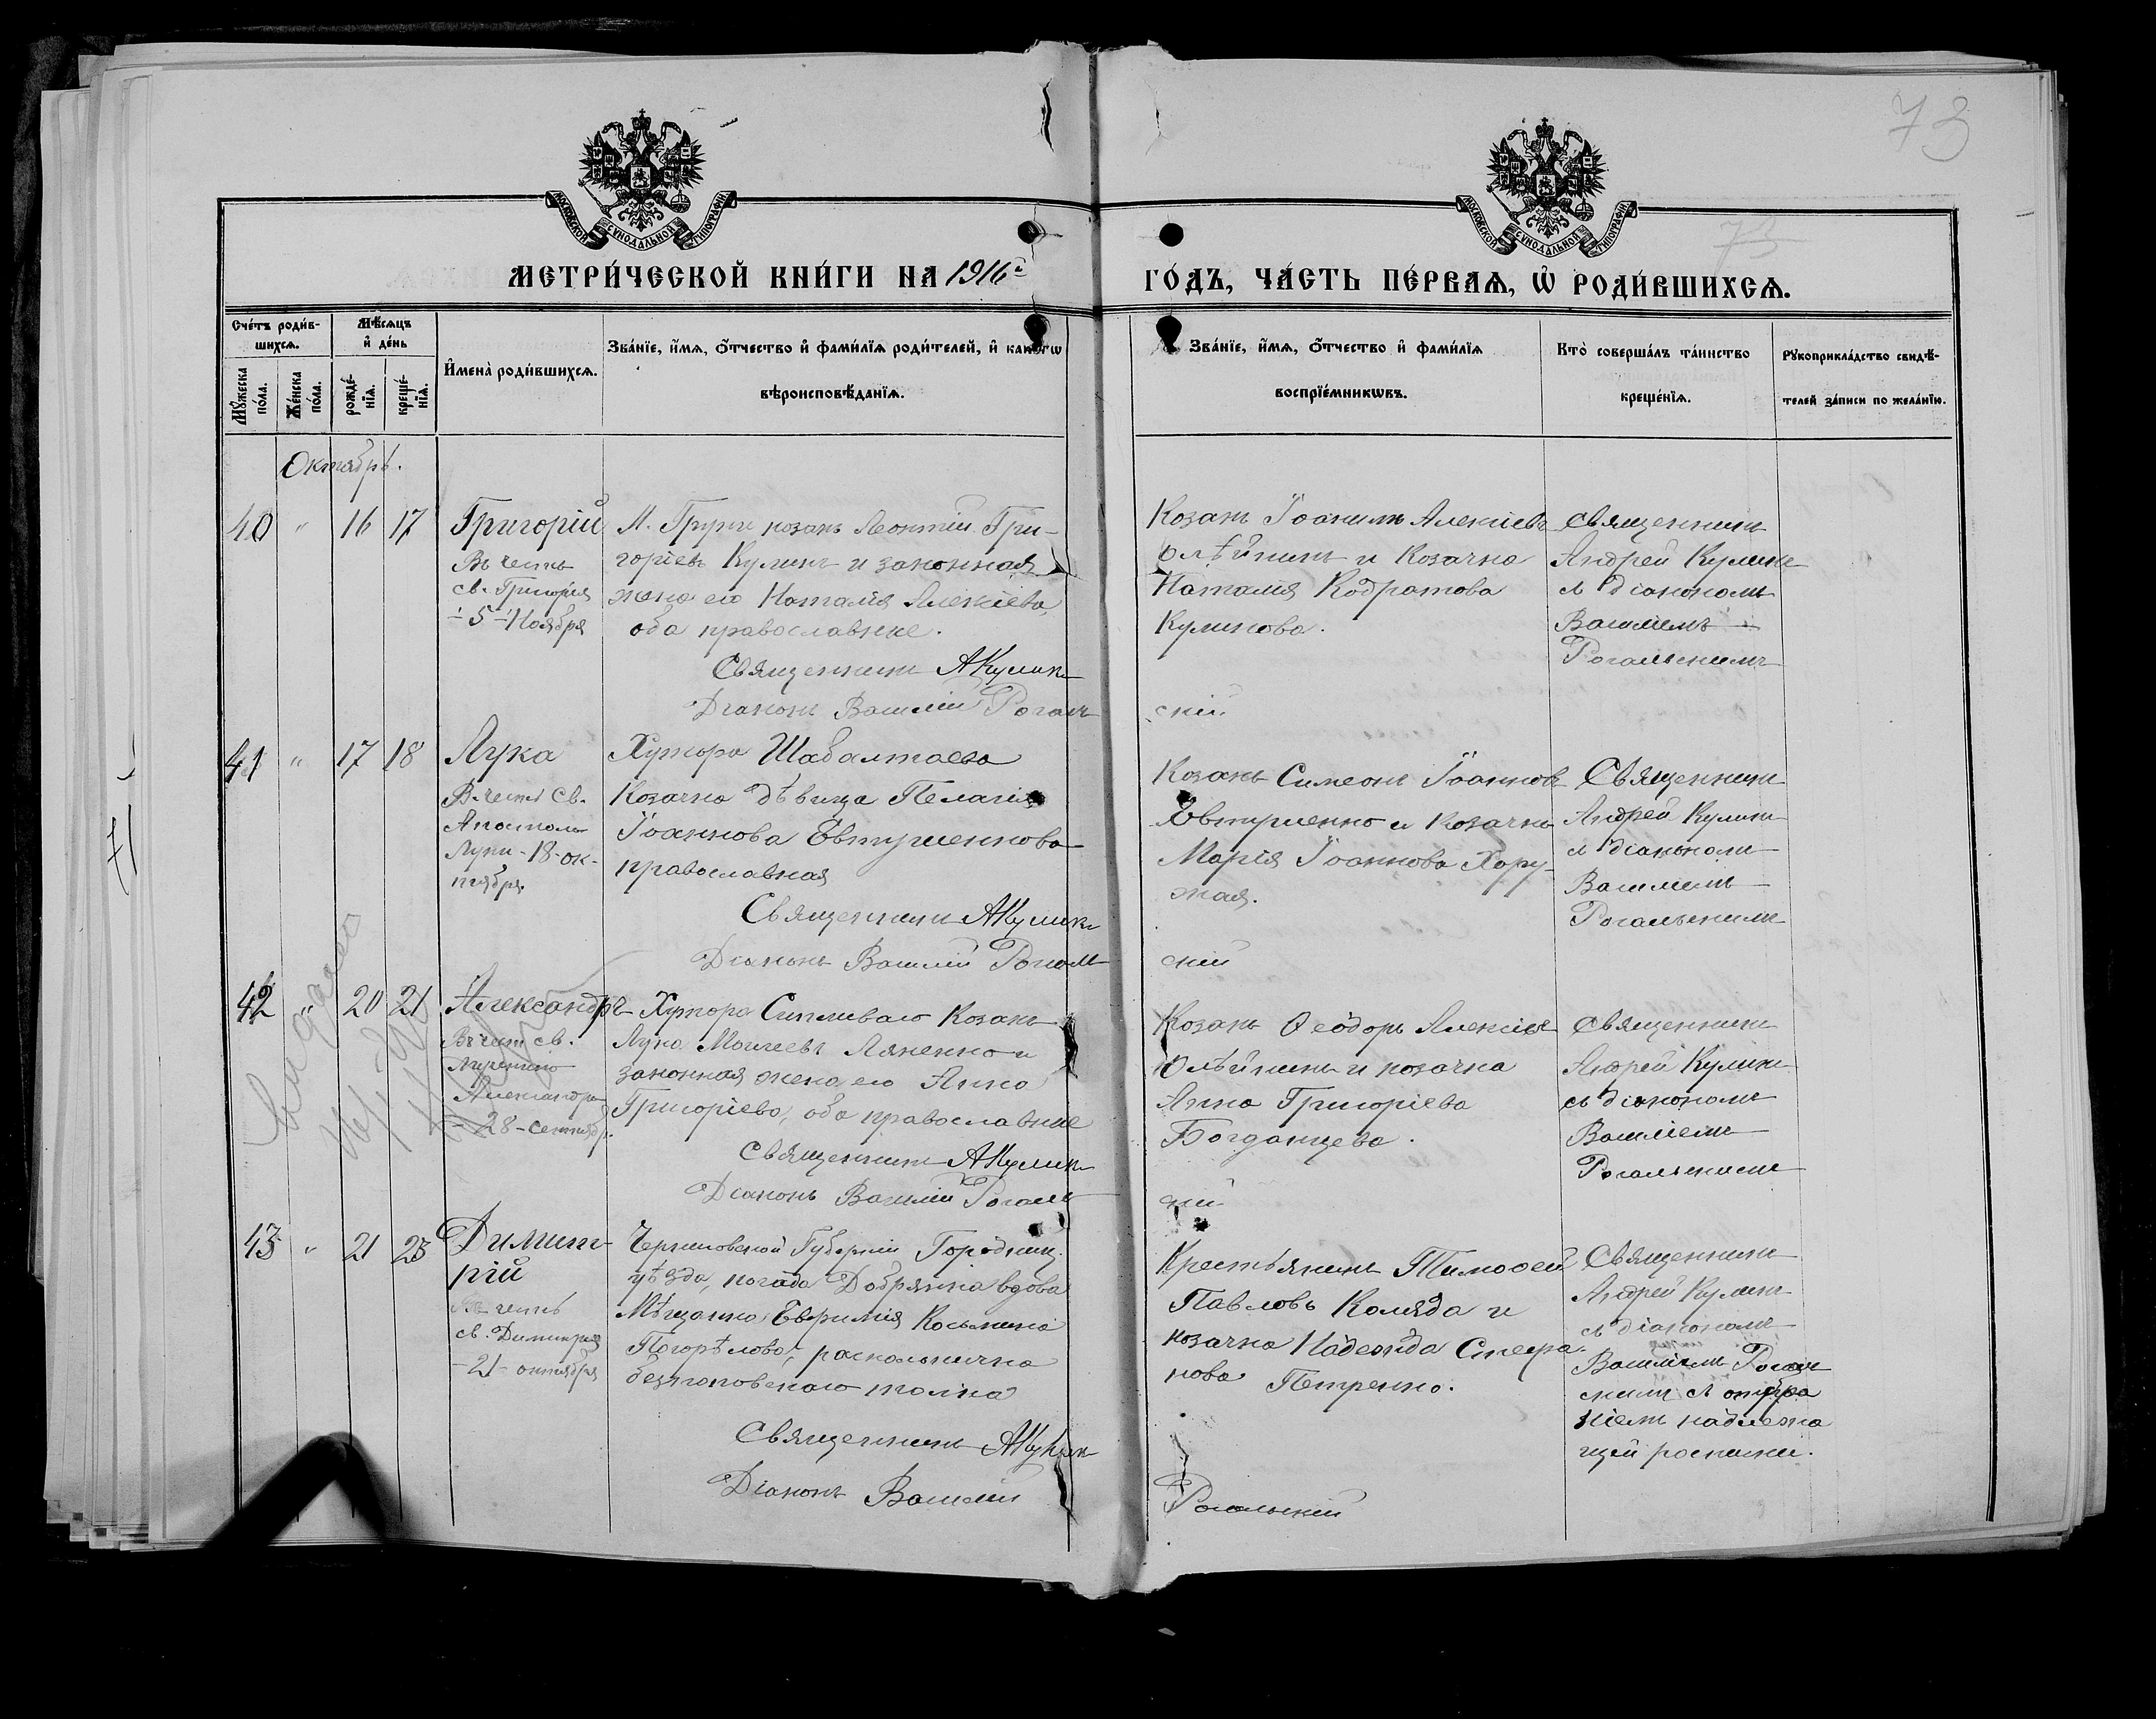 73
МОСКОВСКОЙ СѴНОДАЛЬНОЙ ТИПОГРАФІИ
МОСКОВСКОЙ СѴНОДАЛЬНОЙ ТИПОГРАФІИ
73
МЕТРИ́ЧЕСКОЙ КНИ́ГИ НА 1916й ГО́ДЪ, ЧА́СТЬ ПЕ́РВАѦ, Ѡ҆ РОДИ́ВШИХСѦ.
Сче́тъ роди́в-
шихсѧ.
Мѣ́сѧцъ
и҆ де́нь
Мꙋ́жеска по́ла.
Же́нска по́ла.
рожде́-
нїѧ.
креще́-
нїѧ.
И҆мена̀ роди́вшихсѧ.
Зва́нїе, и҆́мѧ, ѻ҆́тчество и҆ фами́лїѧ роди́телей, и҆ како́гѡ
вѣроисповѣ́данїѧ.
Зва́нїе, и҆́мѧ, ѻ҆́тчество и҆ фами́лїѧ
воспрїе́мникѡвъ.
Кто̀ соверша́лъ та́инство
креще́нїѧ.
Рꙋкоприкла́дство свидѣ́-
телей за́писи по жела́нїю.
Октябрь.
40 " 16 17
Григорій
Въ честь
св. Григорія
-5- Ноября
М. Груни козакъ Леонтій Гри-
горіевъ Куликъ и законная
жена его Наталія Алексіева,
оба православные.
Священникъ А Куликъ
Діаконъ Василій Рогаль
скій
Козакъ Іоакимъ Алексіевъ
Олѣйникъ и Козачка
Наталія Кодратова
Куликова.
Священникъ
Андрей Куликъ
съ діакономъ
Василіемъ
Рогальскимъ
41 " 17 18
Лука
В честь св.
Апостола
Луки -18- ок-
тября.
Хутора Шабалтаева
Козачка дѣвица Пелагія
Іоаннова Евтушенкова
православная
Священникъ А Куликъ
Діаконъ Василій Рогаль
скій
Козакъ Симеонъ Іоанновъ
Евтушенко и козачка
Марія Іоаннова Хору-
жая.
Священникъ
Андрей Куликъ
съ діакономъ
Василіемъ
Рогальскимъ
42 " 20 21
Александръ
Въ честь св.
Мученика
Александра
- 28 - сентябр.
Хутора Сипливаго Козакъ
Лука Моисеевъ Ляненко и
законная жена его Анна
Григоріева, оба православные
Священникъ А Куликъ
Діаконъ Василій Рогаль
скій
Козакъ Ѳеодоръ Алексіевъ
Олѣйникъ и козачка
Анна Григоріева
Богданцева.
Священникъ
Андрей Куликъ
съ діакономъ
Василіемъ
Рогальскимъ
43 " 21 23
Димит-
рій
Въ честь
св. Димитрія
-21- октября
Черниговской Губерніи Городниц.
уѣзда, посада Добрянка вдова
Мѣщанка Евфимія Косьмина
Погорѣлова, раскольничка
безпоповскаго толка
Священникъ А Куликъ
Діаконъ Василій
Рогальскій
Крестьянинъ Тимоѳей
Павловъ Коляда и
козачка Надежда Стефа
нова Петренко.
Священникъ
Андрей Куликъ
съ діакономъ
Василіемъ Рогаль
скимъ съ отобра
ніемъ надлежа
щей росписки.